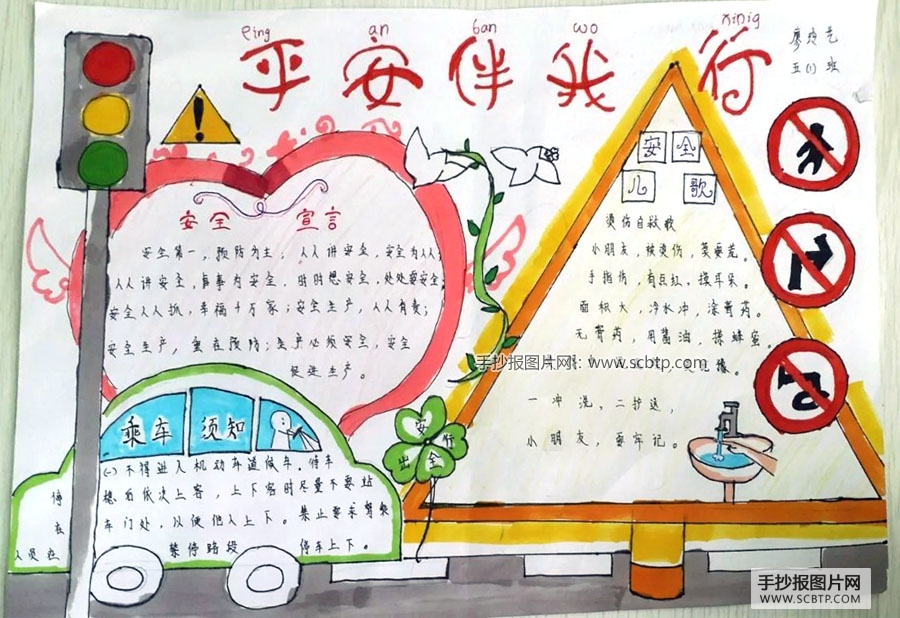 ping an ban wo xinig
平安伴我行
五(1)班
安全宣言
安全第一，预防为主，人人讲安全，安全为人人
人人讲安全，事事为安全，时时想安全，处处要安全
安全人人抓，幸福千万家；安全生产，人人有责；
安全生产，重在预防；生产必须安全，安全
促进生产。
安全
儿歌
烫伤自救歌
小朋友，被烫伤，莫要慌。
手指伤，有点红，摸耳朵。
面积大，冷水冲，涂膏药。
无膏药，用酱油，搽蜂蜜。
一冲洗，二护送，
小朋友，要牢记。
手抄报图片网：www.scbtp.com
安行
出全
乘车须知
(一)不得进入机动车道候车。停车
稳后依次上客，上下客时尽量不要站
在车门处，以便他人上下。禁止要求驾驶
人员在禁停路段停车上下。
手抄报图片网
WWW.SCBTP.COM